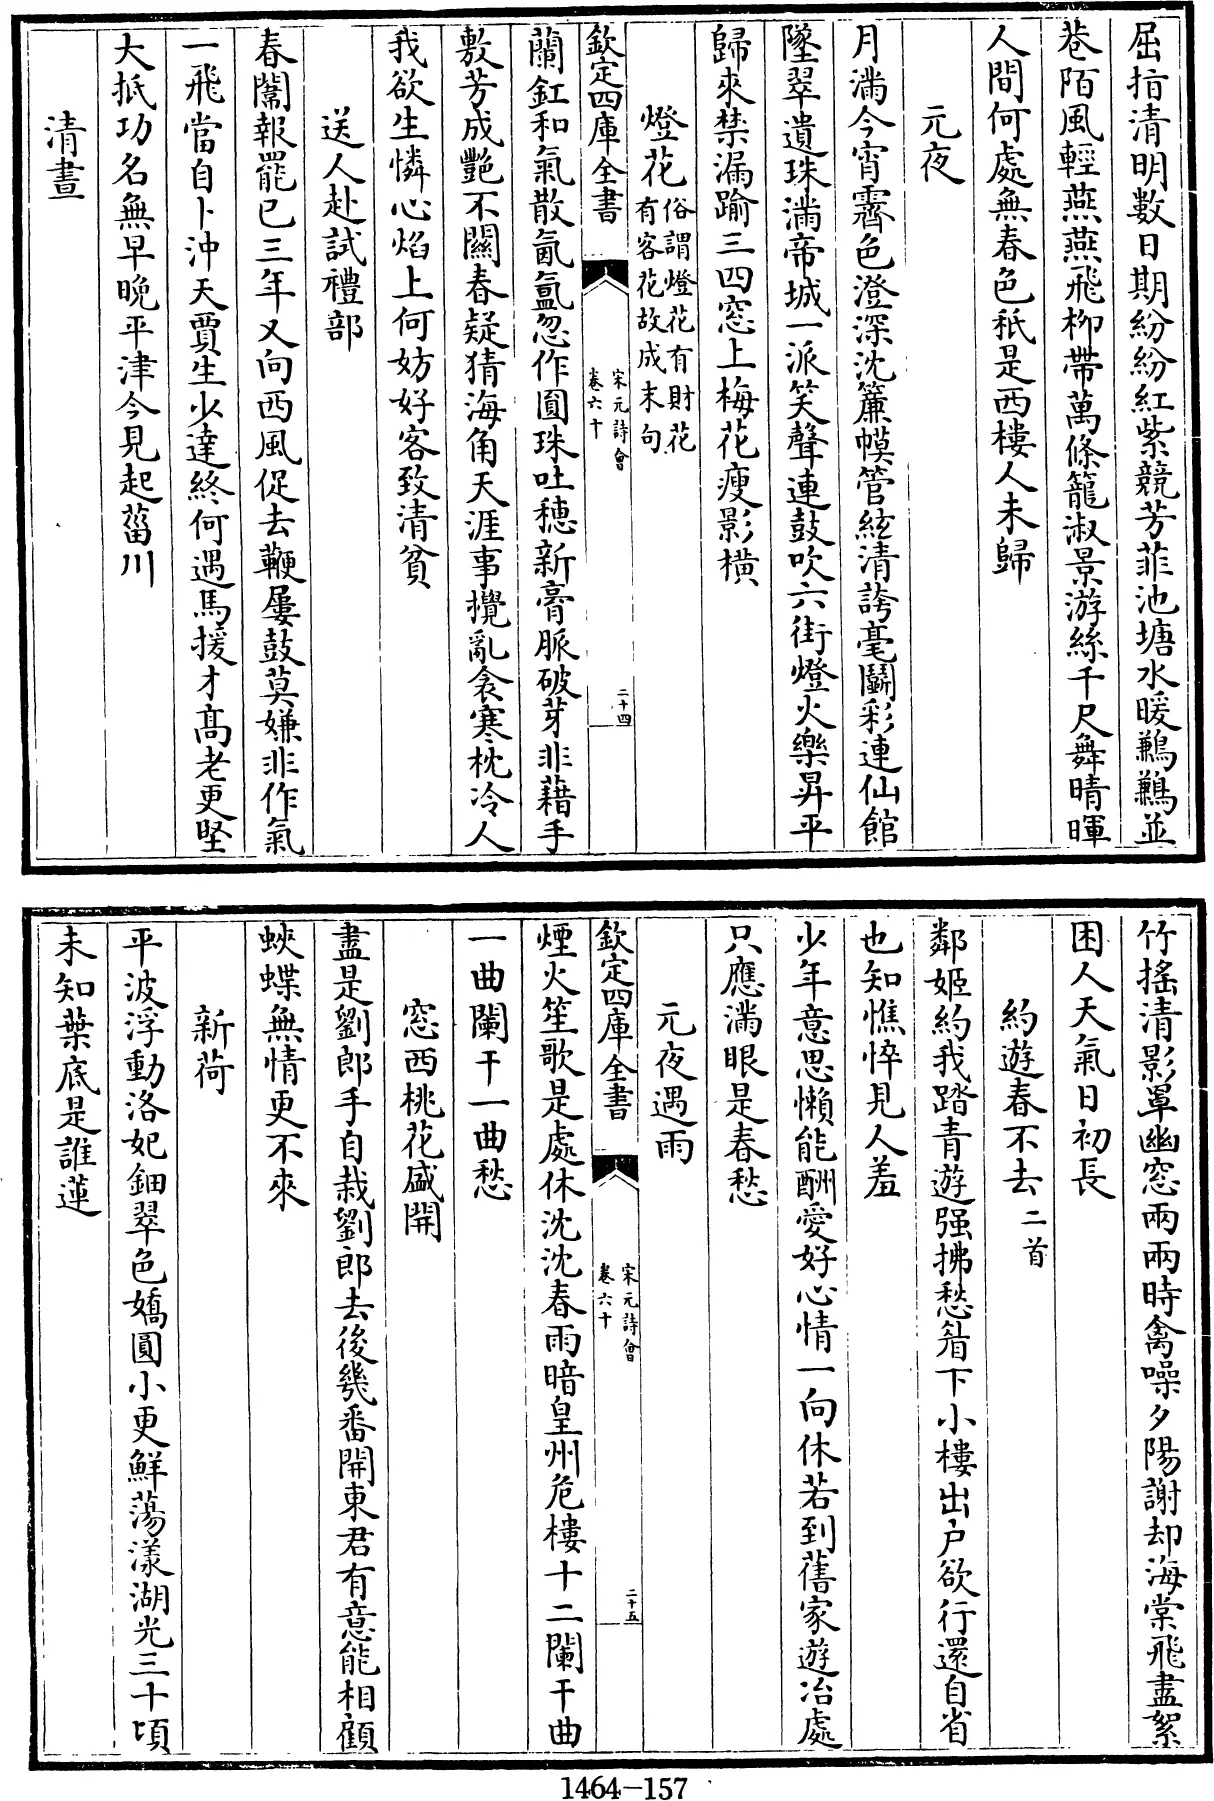 屈指清明數日期紛紛紅紫競芳菲池塘水暖鶼鶼並
巷陌風輕燕燕飛柳帶萬條籠淑景游絲千尺舞晴暉
人間何處無春色秪是西樓人未歸
元夜
月滿今宵霽色澄深沈簾幙管絃清誇毫鬬彩連仙館
墜翠遺珠滿帝城一派笑聲連鼓吹六街燈火樂昇平
歸來禁漏踰三四窓上梅花瘦影橫
燈花俗謂燈花有財花
有客花故成末句
欽定四庫全書
宋元詩會
卷六十
二十四
蘭釭和氣散氤氳忽作圓珠吐穗新膏脈破芽非藉手
敷芳成艷不關春疑猜海角天涯事攪亂衾寒枕冷人
我欲生憐心焰上何妨好客致清貧
送人赴試禮部
春闈報罷已三年又向西風促去鞭屢鼓莫嫌非作氣
一飛當自卜沖天賈生少達終何遇馬援才高老更堅
大抵功名無早晚平津今見起菑川
清晝
竹搖清影罩幽窓兩兩時禽噪夕陽謝却海棠飛盡絮
困人天氣日初長
約遊春不去二首
鄰姬約我踏青遊强拂愁眉下小樓出户欲行還自省
也知憔悴見人羞
少年意思懶能酬愛好心情一向休若到舊家遊冶處
只應滿眼是春愁
元夜遇雨
欽定四庫全書
宋元詩會
卷六十
二十五
煙火笙歌是處休沈沈春雨暗皇州危樓十二闌干曲
一曲闌干一曲愁
窓西桃花盛開
盡是劉郎手自栽劉郎去後幾番開東君有意能相顧
蛺蝶無情更不來
新荷
平波浮動洛妃鈿翠色嬌圓小更鮮蕩漾湖光三十頃
未知葉底是誰蓮
1464-157